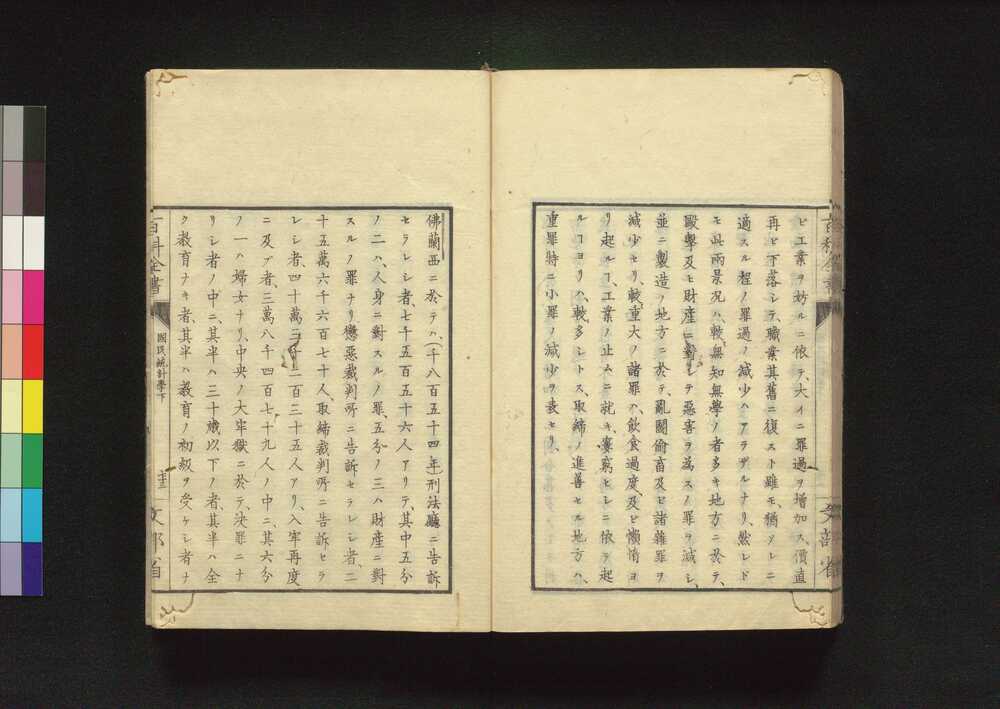 ヒ工業ヲ妨ルニ依テ、大イニ罪過ヲ増加ス、價直
再ビ下落シテ、職業其舊ニ復スト雖モ、猶ソレニ
適スル程ノ罪過ノ減少ハアラザルナリ、然レド
モ此兩景況ハ、較無知無學ノ者多キ地方ニ於テ、
毆撃及モ財産ニ對シテ惡害ヲ為スノ罪ヲ減シ、
並ニ製造ノ地方ニ於テ、亂鬪偷畜及ビ諸雜罪ヲ
減少セリ、較重大ノ諸罪ハ、飲食過度、及ビ懶惰ヨ
リ起ルヿ、工業ノ止ムニ就キ、窶窮セシニ依ラ起
ルヿヨリハ、較多シトス、取締ノ進善セル地方ハ、
重罪特ニ小罪ノ減少ヲ表セリ、
佛蘭西ニ於テハ、(千八百五十四年)刑法廳ニ告訴
セラレシ者、七千五百五十六人アリテ其中五分
ノ二ハ、人身ニ對スルノ罪、五分ノ三ハ財産ニ對
スルノ罪ナリ懲惡裁判所ニ告訴セラレシ者、二
十五萬六千六百七十人、取締裁判所ニ告訴セラ
レシ者、四十萬二千二百三十五人アリ、入牢再度
ニ及ブ者、三萬八千四百七十九人ノ中ニ、其六分
ノ一ハ婦女ナリ、中央ノ大牢獄ニ於テ、決罪ニナ
リシ者ノ中ニ、其半ハ三十歳以下ノ者、其半ハ全
ク教育ナキ者、其半ハ教育ノ初級ヲ受ケシ者ナ
百科全書
國民統計學下
文部省
百科全書
文部省